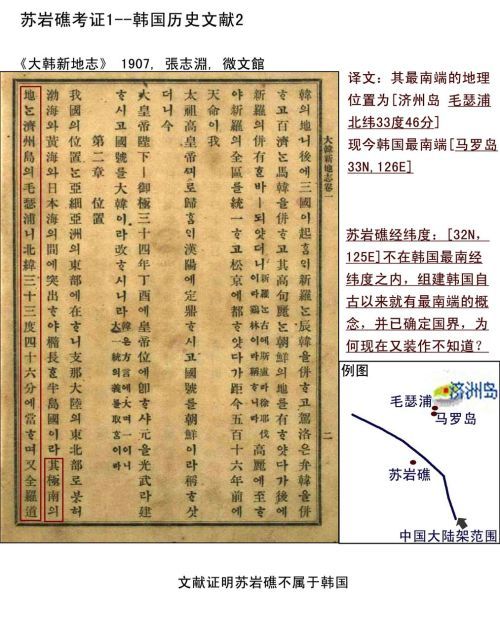 苏岩礁考证1--韩国历史文献2
《大韩新地志》 1907, 張志淵, 微文館
大韓新地志卷一
二
韓의地니後에三國이起홈이新羅ᄂᆞᆫ辰韓을併ᄒᆞ고駕洛은弁韓을併
ᄒᆞ고百濟ᄂᆞᆫ馬韓을併ᄒᆞ고其高句麗ᄂᆞᆫ朝鮮의地를有ᄒᆞ얏다가後에
新羅의併有ᄒᆞᆫ바ㅣ되얏더니 新羅ᄂᆞᆫ古에斯盧라徐耶伐이라鷄林이라稱ᄒᆞ니라 高麗에至ᄒᆞ
야新羅의全區를統一ᄒᆞ고松京에都ᄒᆞ얏다가距今五百十六年前에
天命이我
太祖高皇帝ᄭᅴ로歸ᄒᆞᆷ이漢陽에定鼎ᄒᆞ시고國號를朝鮮이라稱ᄒᆞ샷
더니今
大皇帝陛下ㅣ御極三十四年丁酉에皇帝位에卽ᄒᆞ샤元을光武라建
ᄒᆞ시고國號를大韓이라改ᄒᆞ시니라 韓은方言에大며一이니大一統의義를取홈이라
第二章 位置
我國의位置ᄂᆞᆫ亞細亞洲의東部에在ᄒᆞ니支那大陸의東北로브허
渤海와黃海와日本海의間에突出ᄒᆞᆫ楕長ᄒᆞᆫ半島國이라其極南의
地ᄂᆞᆫ濟州島의毛瑟浦니北緯三十三度四十六分에當ᄒᆞ며又全羅道
译文：其最南端的地理
位置为[济州岛 毛瑟浦
北纬33度46分]
现今韩国最南端[马罗岛
33N,126E]
苏岩礁经纬度：[32N，
125E]不在韩国最南经
纬度之内，组建韩国自
古以来就有最南端的概
念，并已确定国界，为
何现在又装作不知道？
例图
济洲岛
毛瑟浦
马罗岛
苏岩礁
中国大陆架范围
文献证明苏岩礁不属于韩国